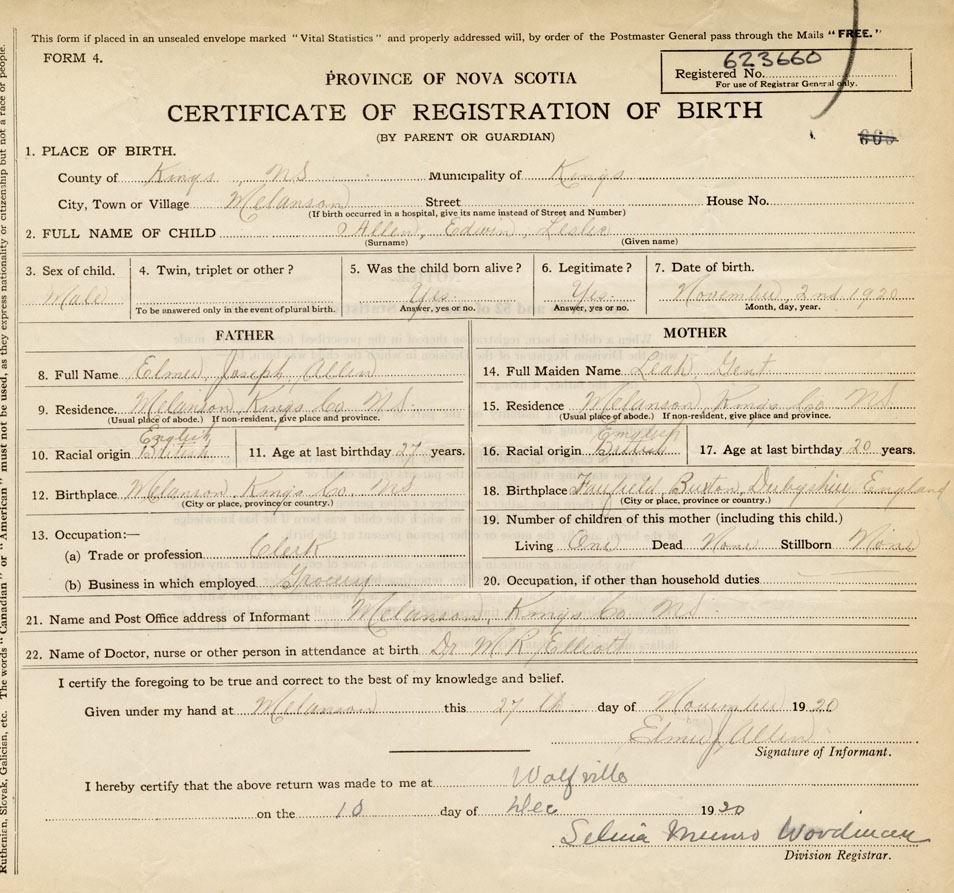 This form if placed in an unsealed envelope marked "Vital Statistics" and properly addressed will, by order of the Postmaster General pass through the Mails "FREE."
FORM 4.
623660
Registered No.
For use of Registrar General only.
PROVINCE OF NOVA SCOTIA
CERTIFICATE OF REGISTRATION OF BIRTH
(BY PARENT OR GUARDIAN)
1. PLACE OF BIRTH.
County of Kings NS Municipality of Kings
City, Town or Village Melanson Street House No.
(If birth occurred in a hospital, give its name instead of Street and Number)
2. FULL NAME OF CHILD Allen, Edwin Leslie
(Surname) (Given name)
3. Sex of child. 4. Twin, triplet or other? 5. Was the child born alive? 6. Legitimate? 7. Date of birth.
Male Yes. Yes. November 2nd 1920
To be answered only in the event of plural birth. Answer, yes or no. Answer, yes or no. Month, day, year.
FATHER
8. Full Name Elmer Joseph Allen
9. Residence Melanson Kings Co NS
(Usual place of abode.) If non-resident, give place and province.
English
10. Racial origin British 11. Age at last birthday 27 years.
12. Birthplace Melanson Kings Co NS
(City or place, province or country.)
13. Occupation:—
(a) Trade or profession Clerk
(b) Business in which employed Grocery
MOTHER
14. Full Maiden Name Leah Gent
15. Residence Melanson Kings Co NS
(Usual place of abode.) If non-resident, give place and province.
English
16. Racial origin British 17. Age at last birthday 20 years.
18. Birthplace Fairfield Buxton Derbyshire England
(City or place, province or country.)
19. Number of children of this mother (including this child.)
Living One Dead None Stillborn None
20. Occupation, if other than household duties
21. Name and Post Office address of Informant Melanson, Kings Co NS
22. Name of Doctor, nurse or other person in attendance at birth Dr M R Elliott
I certify the foregoing to be true and correct to the best of my knowledge and belief.
Given under my hand at Melanson this 27th day of November 1920
Elmer J Allen
Signature of Informant.
I hereby certify that the above return was made to me at Wolfville
on the 10 day of Dec 1920
Selina Munro Woodman
Division Registrar.
Ruthenian, Slovak, Galician, etc. The words "Canadian" or "American" must not be used, as they express nationality or citizenship but not a race or people.